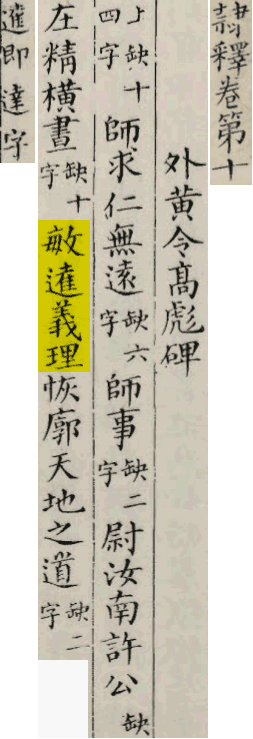 隷釋卷第十
外黃令髙彪碑
上缺十四字師求仁無遠缺六字師事缺二字尉汝南許公缺
在精橫畫缺十字敏𨔶義理恢廓天地之道缺二字
𨔶即達字